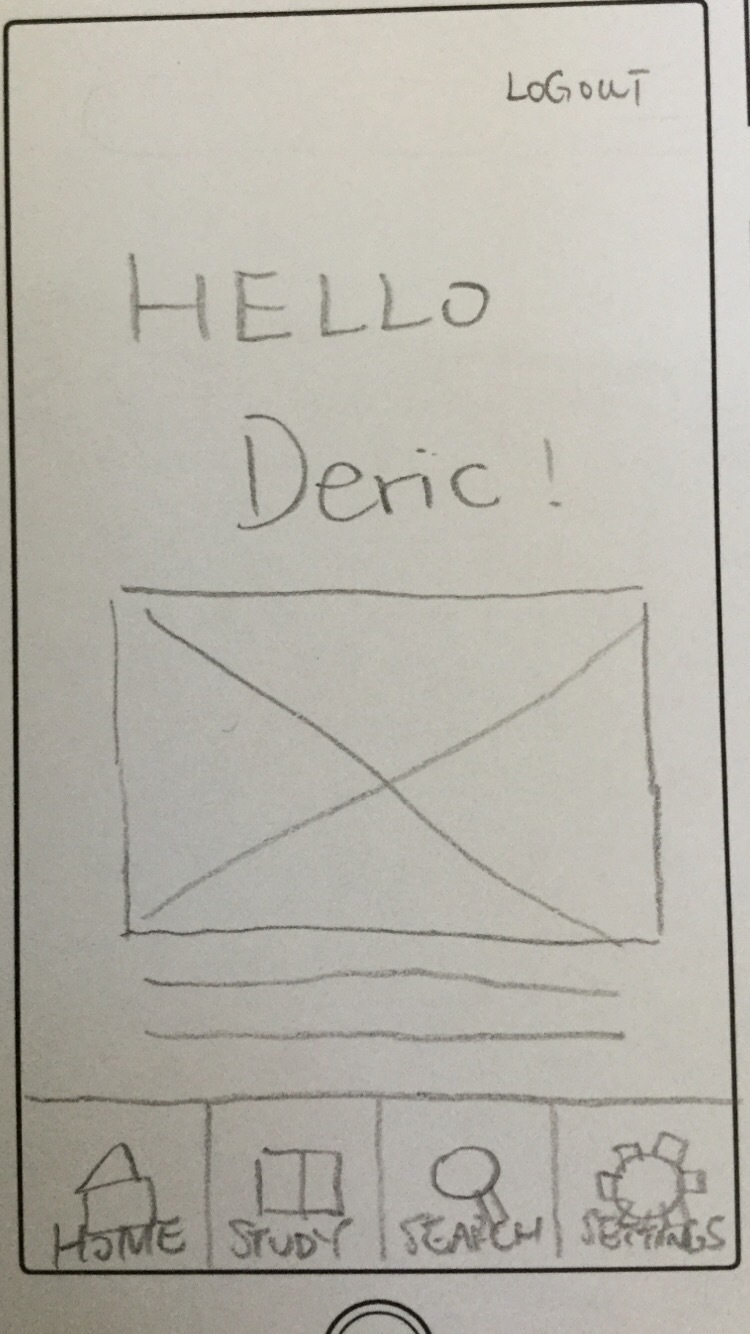 LOGOUT
HELLO
Deric!
HOME STUDY SEARCH SETTINGS